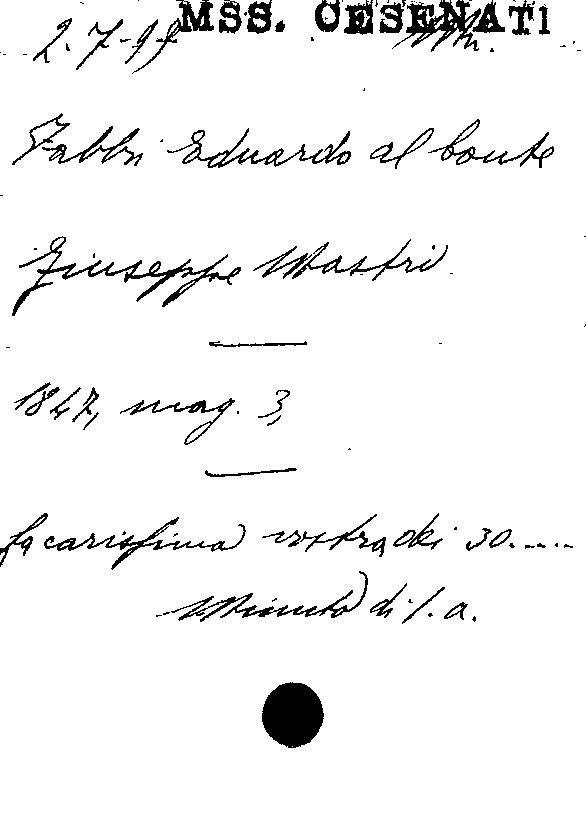 MSS. CESENATI
2.7.
Fabbri Eduardo al conte
Giuseppe Mastri
1847, mag. 3,
La carissima vostra dei 30.....
Minuta di l. a.